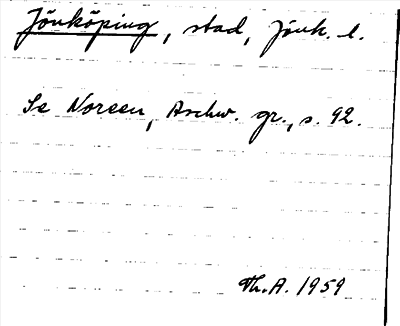 Jönköping, stad, Jönk. l.
Se Noreen, Aschw. gr., s. 92.
Th. A. 1959